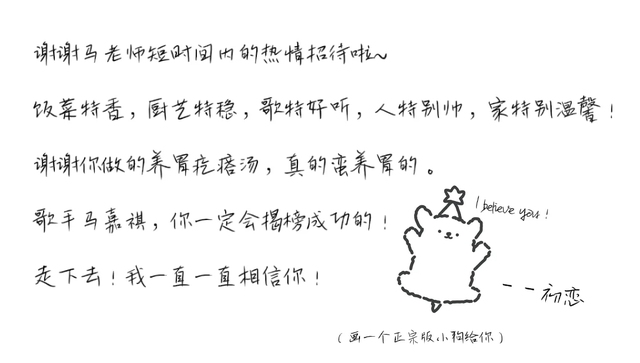 谢谢马老师短时间内的热情招待啦~
饭菜特香，厨艺特稳，歌特好听，人特别帅，家特别温馨！
谢谢你做的养胃疙瘩汤，真的蛮养胃的。
歌手马嘉祺，你一定会揭榜成功的！
I believe you!
走下去！我一直一直相信你！
——初恋
（画一个正宗版小狗给你）